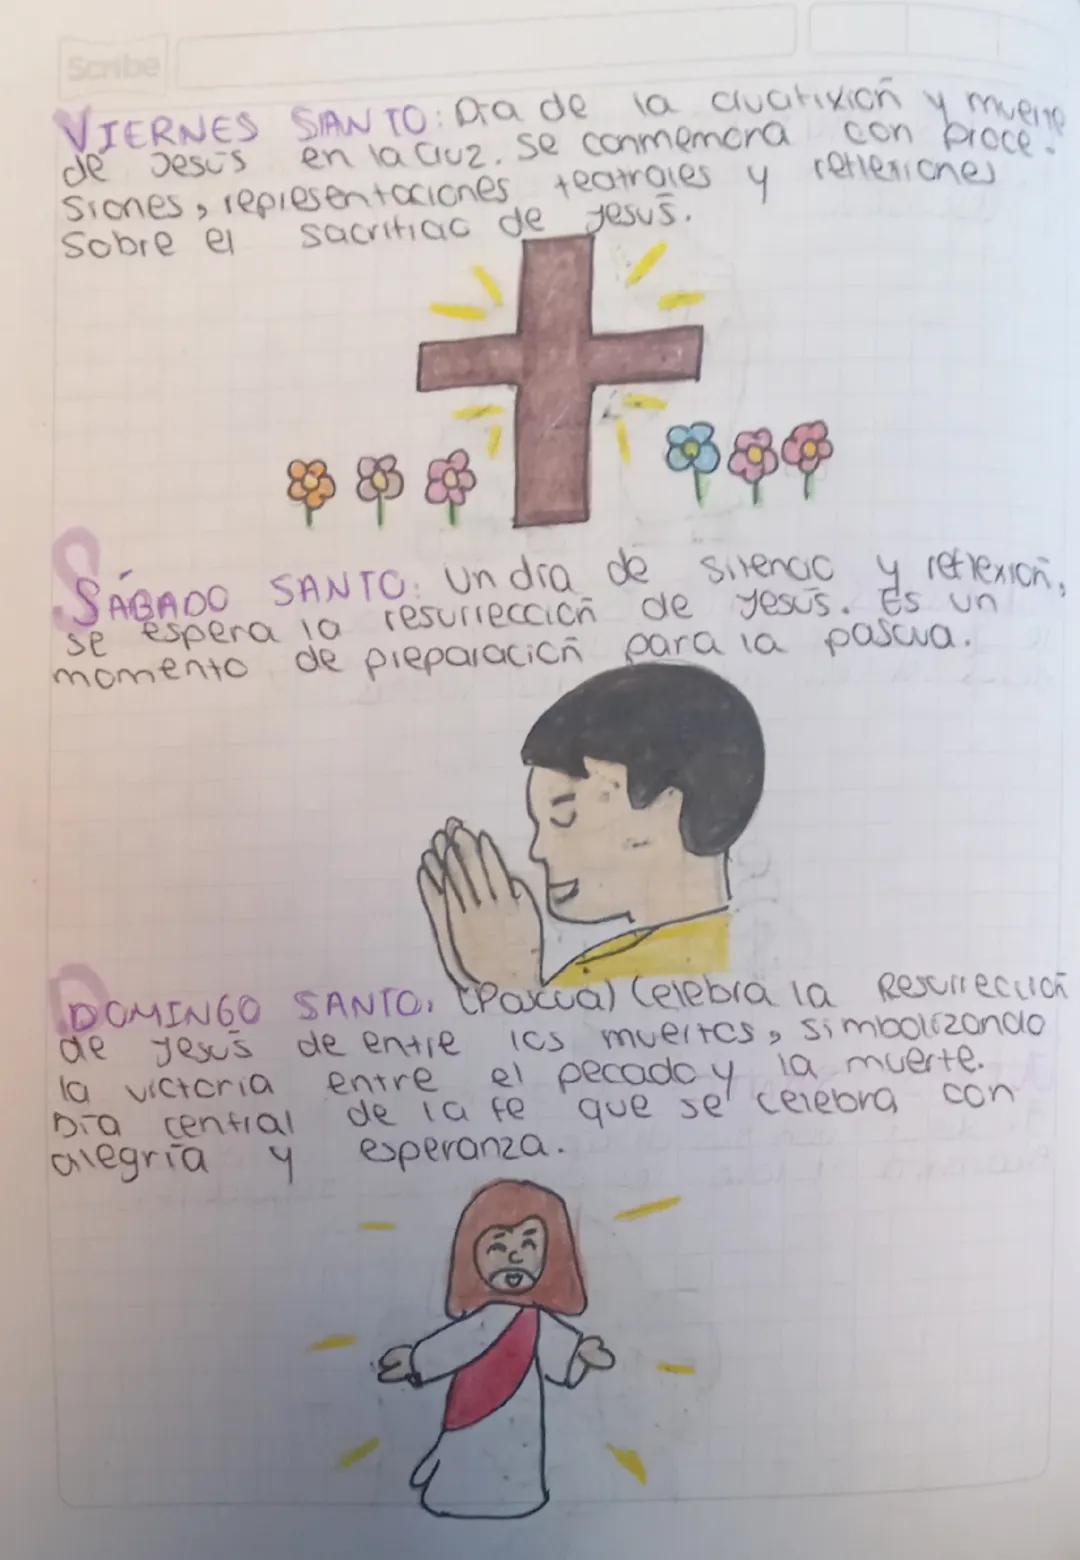 Scribe
VIERNES SANTO: Día de la crucifixión y muerte
de Jesús en la Cruz. Se conmemora con proce-
siones, representaciones teatrales y reflexiones
Sobre el sacrificio de Jesús.
SÁBADO SANTO: Un día de silencio y reflexión,
se espera la resurrección de Jesús. Es un
momento de preparación para la pascua.
DOMINGO SANTO: (Pascua) Celebra la Resurrección
de Jesús de entre los muertos, simbolizando
la victoria entre el pecado y la muerte.
Día central de la fe que se celebra con
alegría y esperanza.